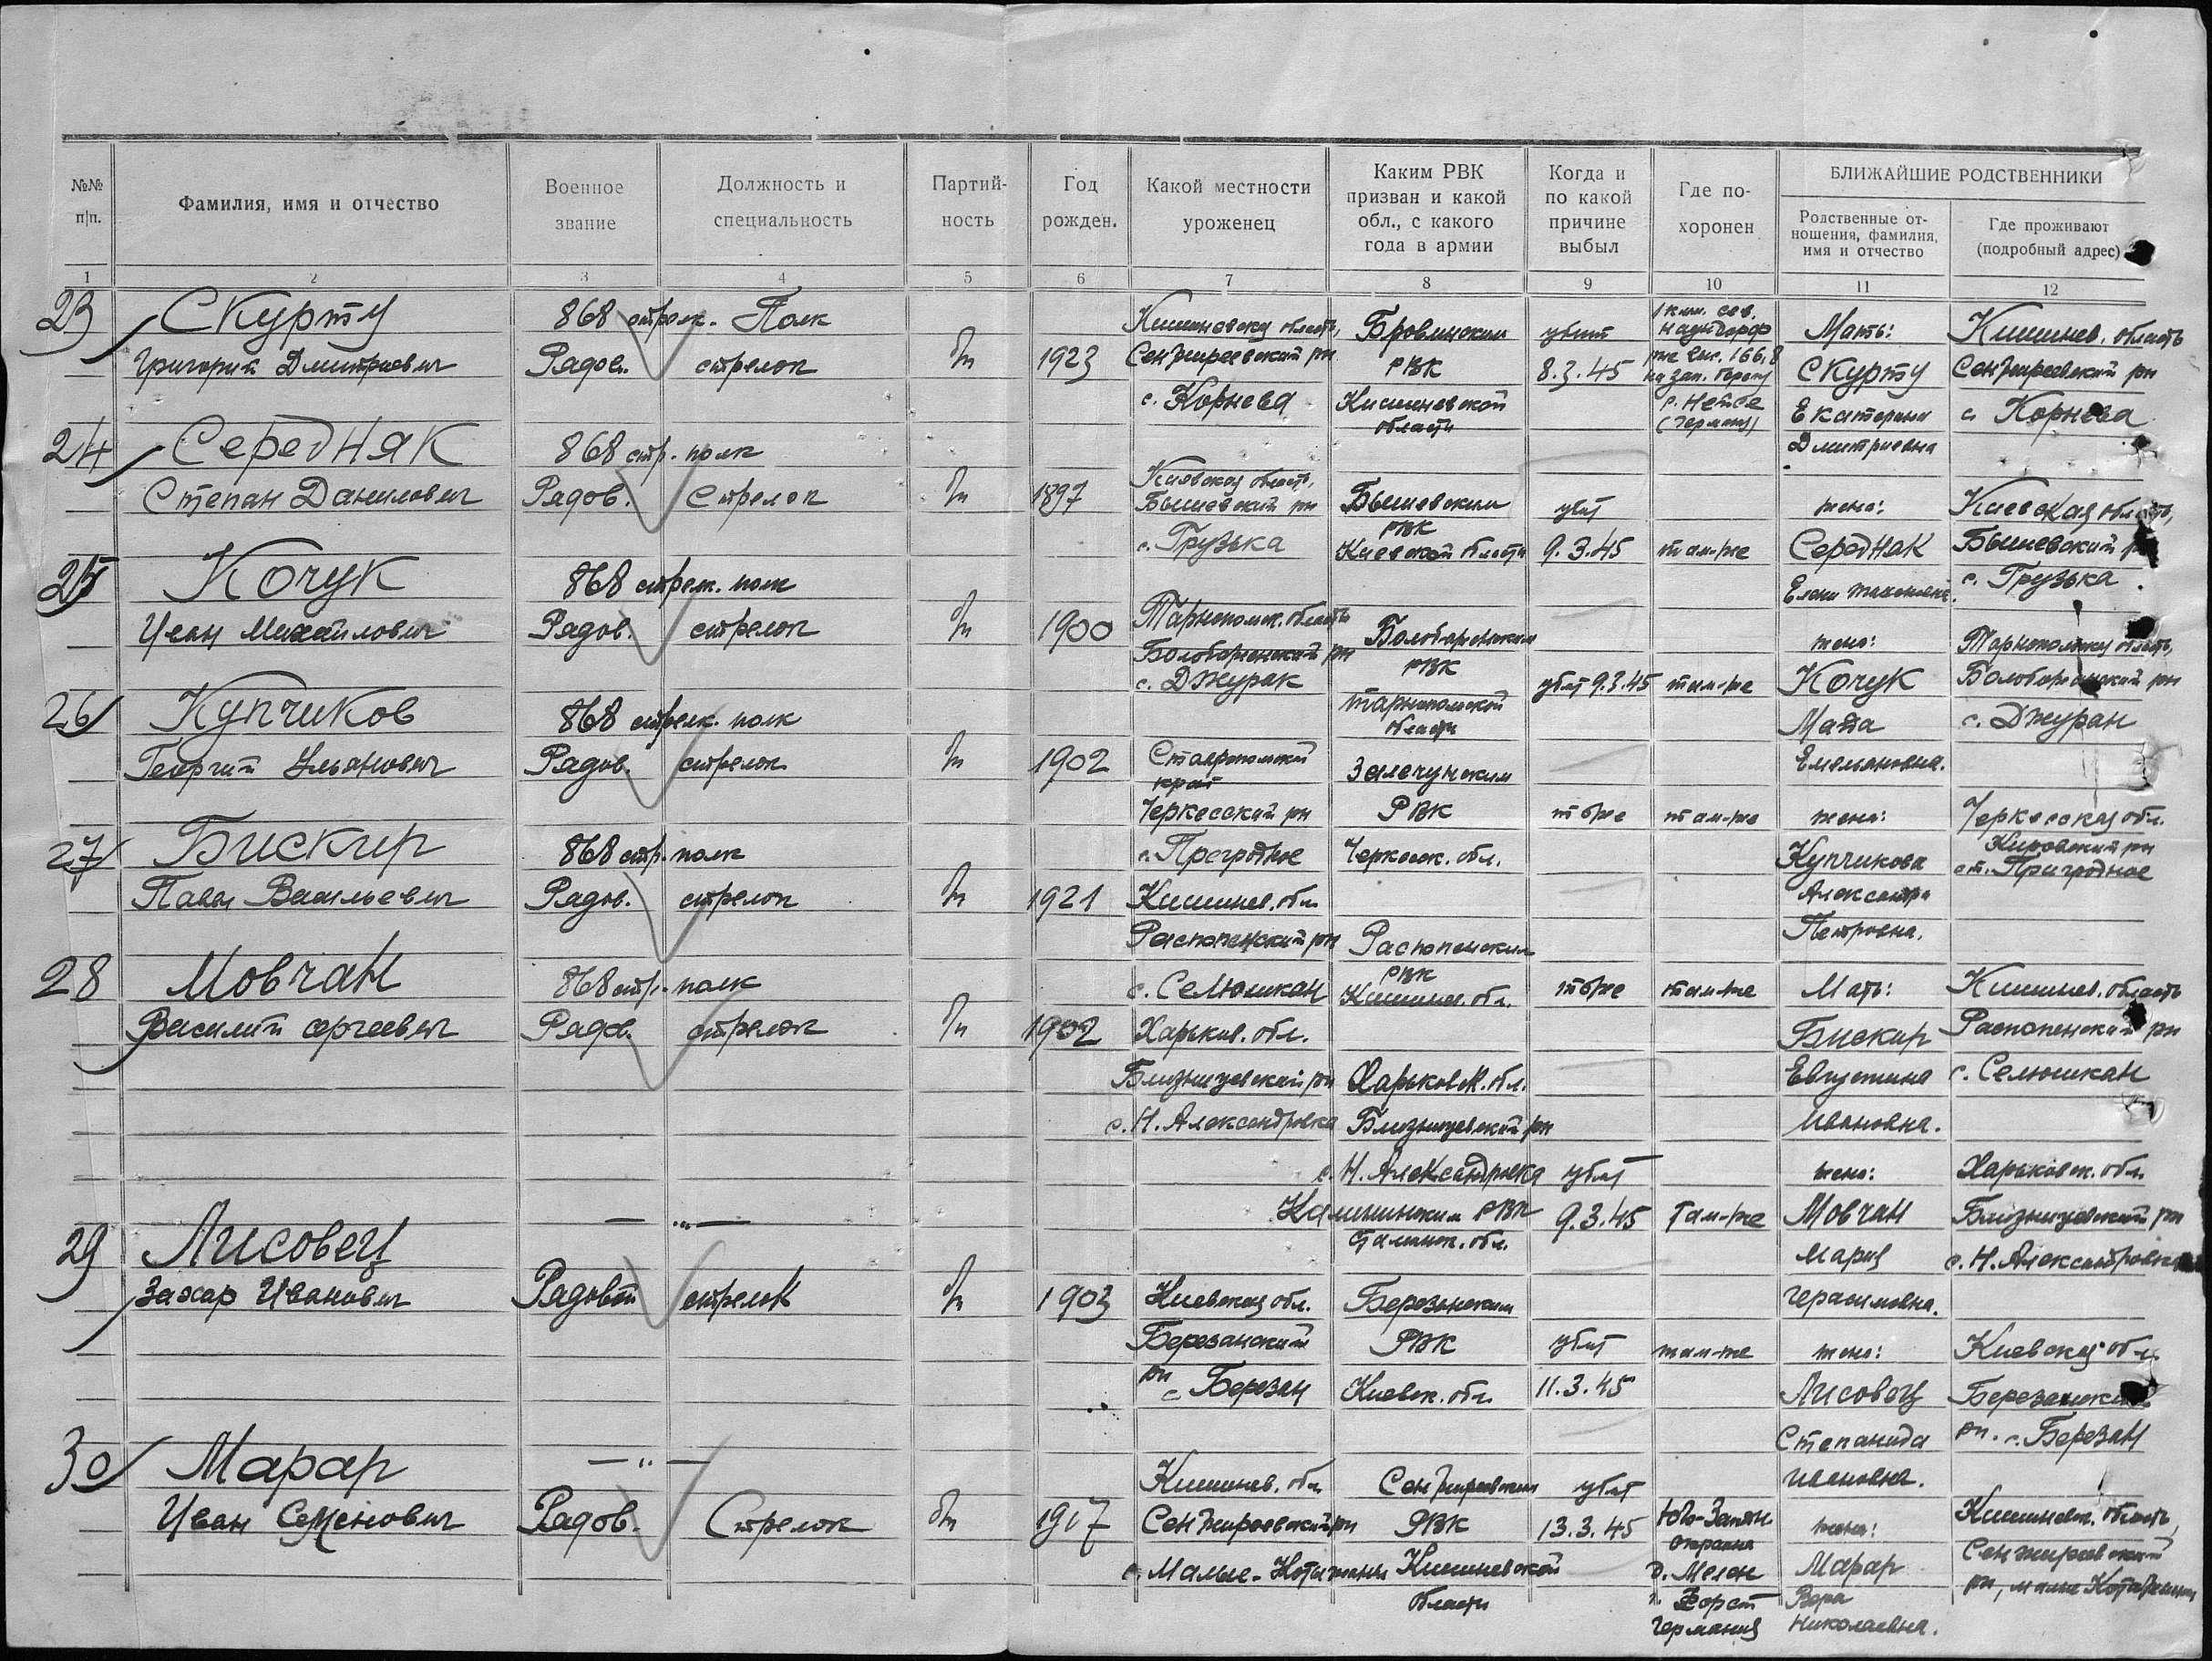 №№ п|п.
Фамилия, имя и отчество
Военное звание
Должность и специальность
Партий- ность
Год рожден.
Какой местности уроженец
Каким РВК призван и какой обл., с какого года в армии
Когда и по какой причине выбыл
Где по- хоронен
БЛИЖАЙШИЕ РОДСТВЕННИКИ
Родственные от- ношения, фамилия, имя и отчество
Где проживают (подробный адрес)
1 2 3 4 5 6 7 8 9 10 11 12
23 Скурту 868 стрелк. Полк
Григорий Дмитриевич Рядов. стрелок б/п 1923
Кишиневская область,
Сенжиреевский рн
с. Корнева
Бровинским
РВК
Кишиневской
области
убит
8.3.45
1 км. сев.
выс. 166,8
на зап. берегу
р. Нейсе
(Германия)
Мать:
Скурту
Екатерина
Дмитриевна
Кишинев. область
Сенжиреевский рн
с Корнева
24 Середняк 868 стр. полк
Степан Данилович Рядов. Стрелок б/п 1897
Киевская область,
Бышевский рн
с. Грузька
Бышевским
РВК
Киевской области
убит
9.3.45
там-же
жена:
Середняк
Елена
Киевская область,
Бышевский рн
с. Грузька
25 Кочук 868 стрелк. полк
Иван Михайлович Рядов. стрелок б/п 1900
Тарнопольск. область
Белобоженский рн
с. Джурак
Белобоженским
РВК
тарнопольской
области
убит 9.3.45
там-же
жена:
Кочук
Мария
Емельяновна.
Тарнопольская область,
Белобоженский рн
с. Джуран
26 Купчиков 868 стрелк. полк
Георгий Ульянович Рядов. стрелок б/п 1902
Ставропольский
край
Черкесский рн
с. Прегродное
Зеленчукским
РВК
Черкесск. обл.
то же
там-же
жена:
Купчикова
Александра
Петровна.
Черкесская обл.
Кировский рн
ст. Пригродное
27 Бискир 868 стр. полк
Павел Васильевич Рядов. стрелок б/п 1921
Кишинев. обл.
Распопенский рн
с. Селюшкан
Распопенским
РВК
Кишинев. обл.
то же
там-же
Мать:
Бискир
Евгустина
Ивановна.
Кишинев. область
Распопенский рн
с. Селюшкан
28 Мовчан 868 стр. полк
Василий Сергеевич Рядов. стрелок б/п 1902
Харьков. обл.
Близнецовский рн
с. Н. Александровка
Харьковск. обл.
Близнецовский рн
с. Н. Александровка
Калининским РВК
Сталинск. обл.
убит
9.3.45
там-же
жена:
Мовчан
Мария
Герасимовна.
Харьковск. обл.
Близнецовский рн
с. Н. Александровка
29 Лисовец — „ —
Захар Иванович Рядовой стрелок б/п 1903
Киевская обл.
Березанский
рн
с. Березан
Березанским
РВК
Киевск. обл.
убит
11.3.45
там-же
жена:
Лисовец
Степанида
Ивановна.
Киевская обл.
Березанский
рн. с. Березан
30 Марар — „ —
Иван Семенович Рядов. Стрелок б/п 1917
Кишинев. обл.
Сенжиреевский рн
с. Малые-Котюжаны
Сенжиреевским
РВК
Кишиневской
области
убит
13.3.45
Юго-Западн.
окраина
д. Мелен
Форст
Германия
жена:
Марар
Вера
Николаевна.
Кишиневск. область,
Сенжиреевский
рн, малые Котюжаны